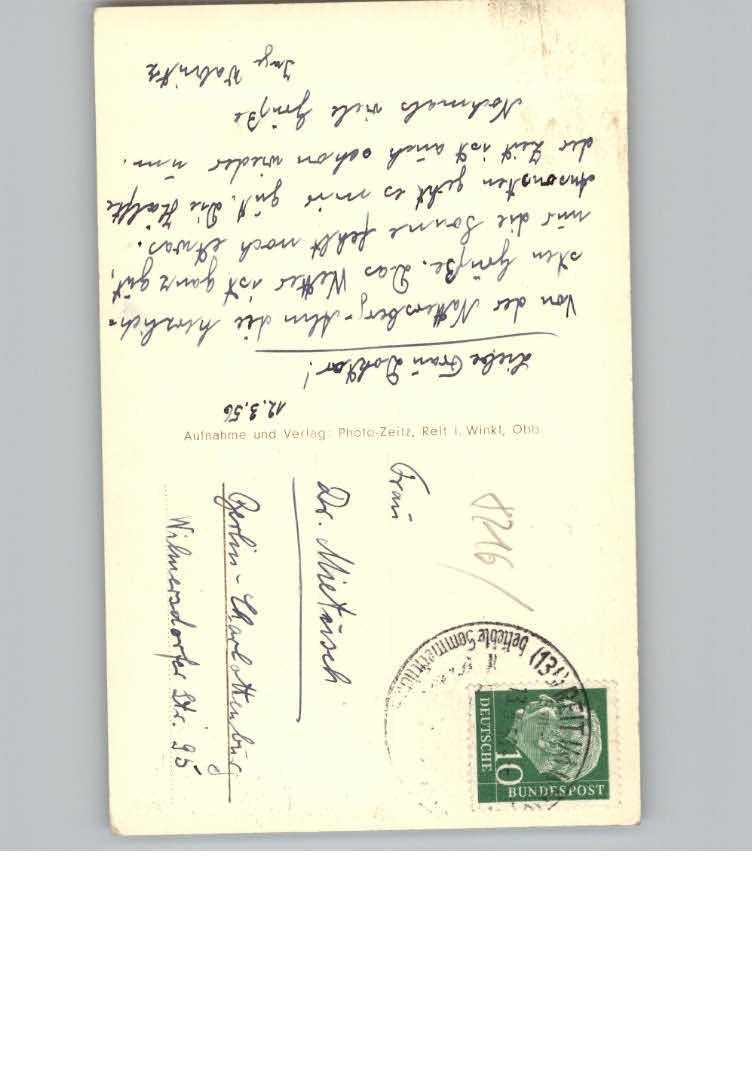 12.3.56
Liebe Frau Doktor!
Von der Nattersberg-Alm die herzlich-
sten Grüße. Das Wetter ist ganz gut,
nur die Sonne fehlt noch etwas.
Ansonsten geht es mir gut. Die Hälfte
der Zeit ist auch schon wieder um.
Nochmals viele Grüße
Inge
Aufnahme und Verlag: Photo-Zeitz, Reit i. Winkl, Obb.
8216/
Frau
Dr. Mietusch
Berlin-Charlottenburg
Wilmersdorfer Str. 95
REIT I/
beliebte
DEUTSCHE
10
BUNDESPOST